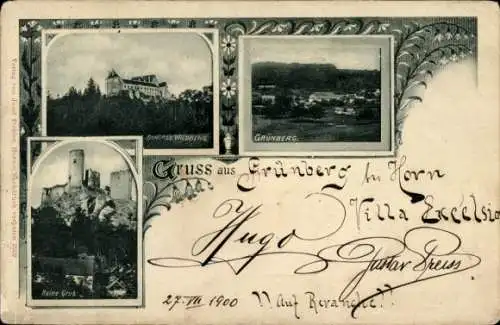 SCHLOSS WILDBERG.
GRÜNBERG.
Ruine Gars
Gruss aus Grünberg bei Horn
Villa Excelsior
Hugo
Gustav Preiss
27. VII 1900 "Auf Revanche"!